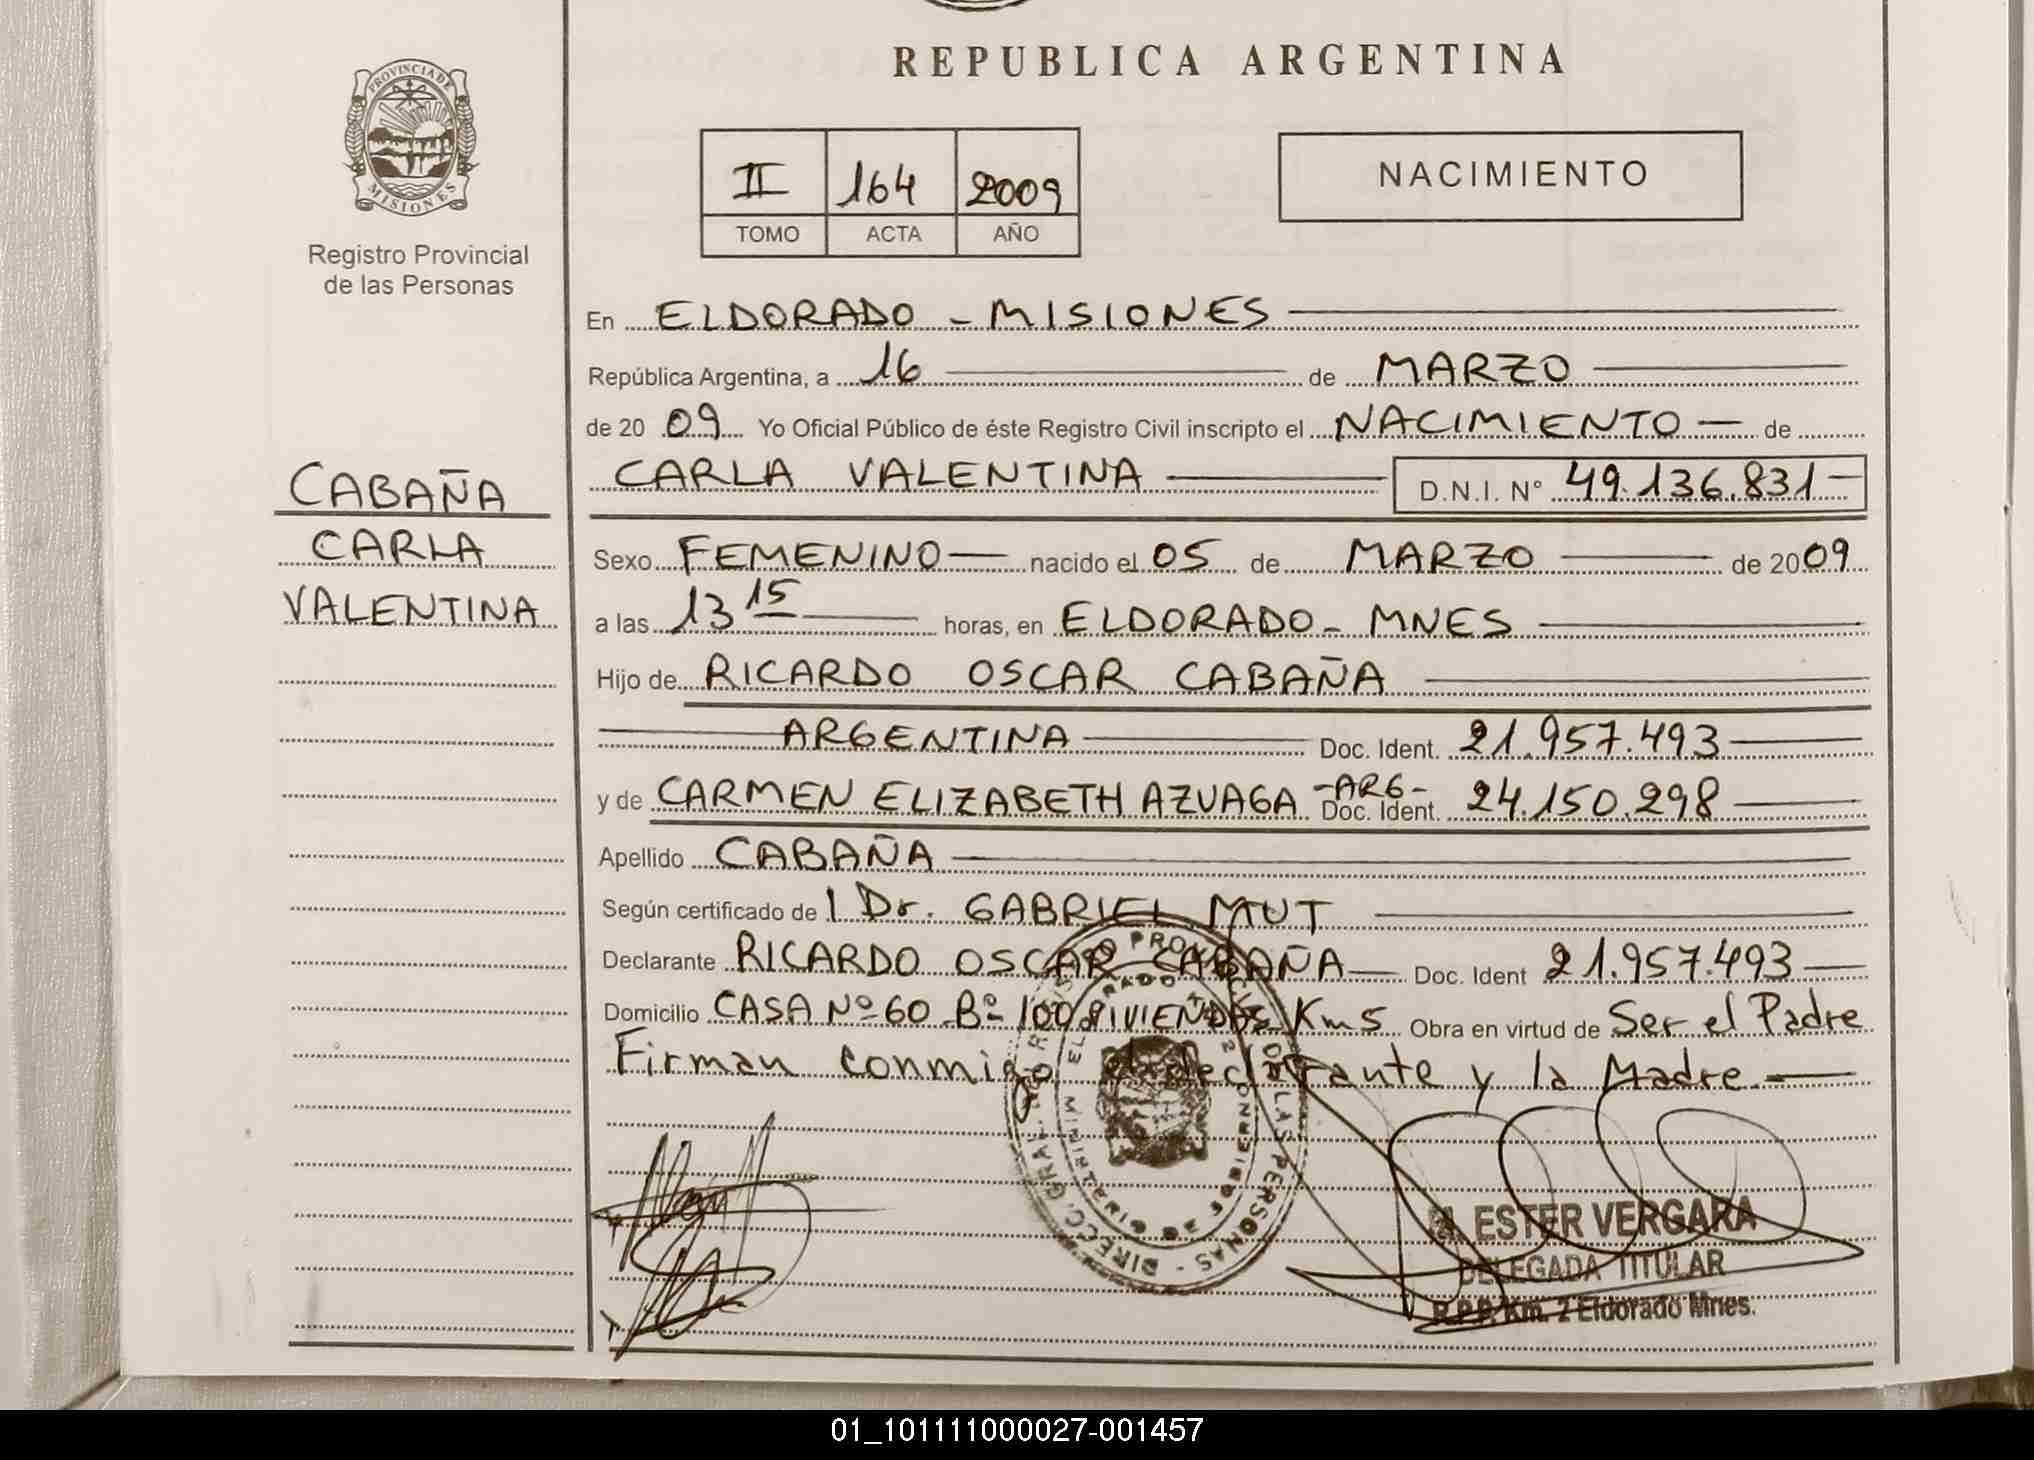 REPUBLICA ARGENTINA
PROVINCIA DE
MISIONES
Registro Provincial
de las Personas
II 164 2009
TOMO ACTA AÑO
NACIMIENTO
CABAÑA
CARLA
VALENTINA
En ELDORADO - MISIONES
República Argentina, a 16 de MARZO
de 2009 Yo Oficial Público de éste Registro Civil inscripto el NACIMIENTO de
CARLA VALENTINA D.N.I. Nº 49.136.831
Sexo FEMENINO nacido el 05 de MARZO de 2009
a las 13 15 horas, en ELDORADO - MNES
Hijo de RICARDO OSCAR CABAÑA
ARGENTINA Doc. Ident. 21.957.493
y de CARMEN ELIZABETH AZUAGA -ARG- Doc. Ident. 24.150.298
Apellido CABAÑA
Según certificado de l Dr. GABRIEL MUT
Declarante RICARDO OSCAR CABAÑA Doc. Ident 21.957.493
Domicilio CASA Nº 60 Bº 100 VIVIENDAS Km 5 Obra en virtud de Ser el Padre
Firman conmigo el declarante y la Madre
DIRECC. GRAL. REGISTRO PROVINCIAL DE LAS PERSONAS
M. ESTER VERGARA
DELEGADA TITULAR
R.P.P. Km. 2 Eldorado Mnes.
01_101111000027-001457